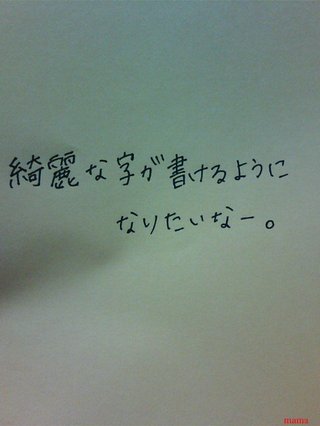 綺麗な字が書けるように
なりたいなー。
mama